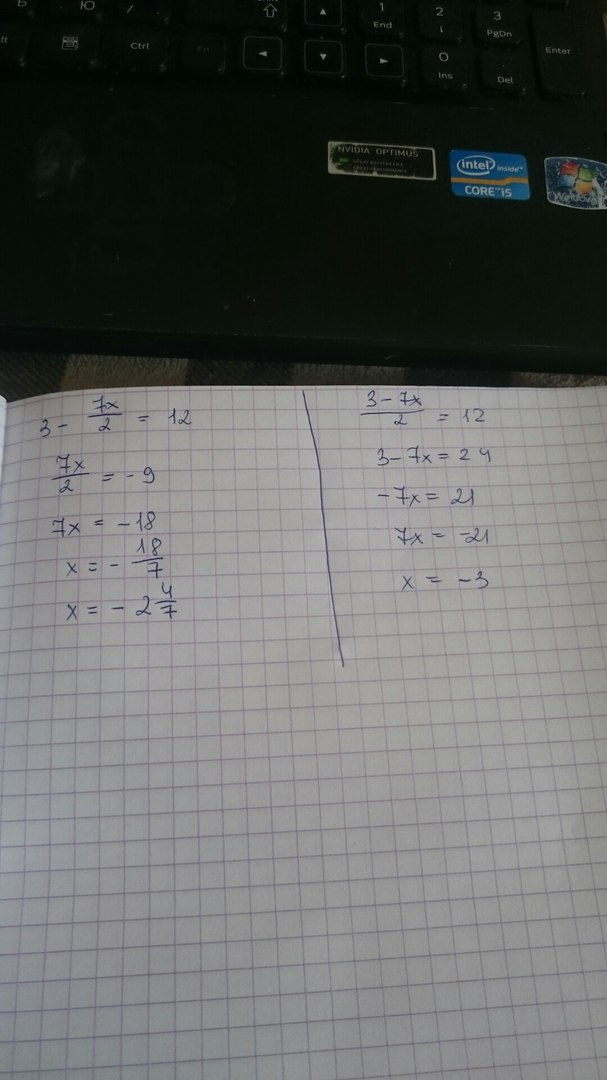 Б Ю / . Shift ▲ 1 End 2 ↓ 3 PgDn
lt Ctrl Fn ◄ ▼ ► 0 Ins Del Enter
NVIDIA OPTIMUS
intel inside™
CORE™ i5
Windows
3 - 7x/2 = 12
7x/2 = - 9
7x = -18
x = - 18/7
x = - 2 4/7
3 - 7x/2 = 12
3 - 7x = 24
-7x = 21
7x = -21
x = -3